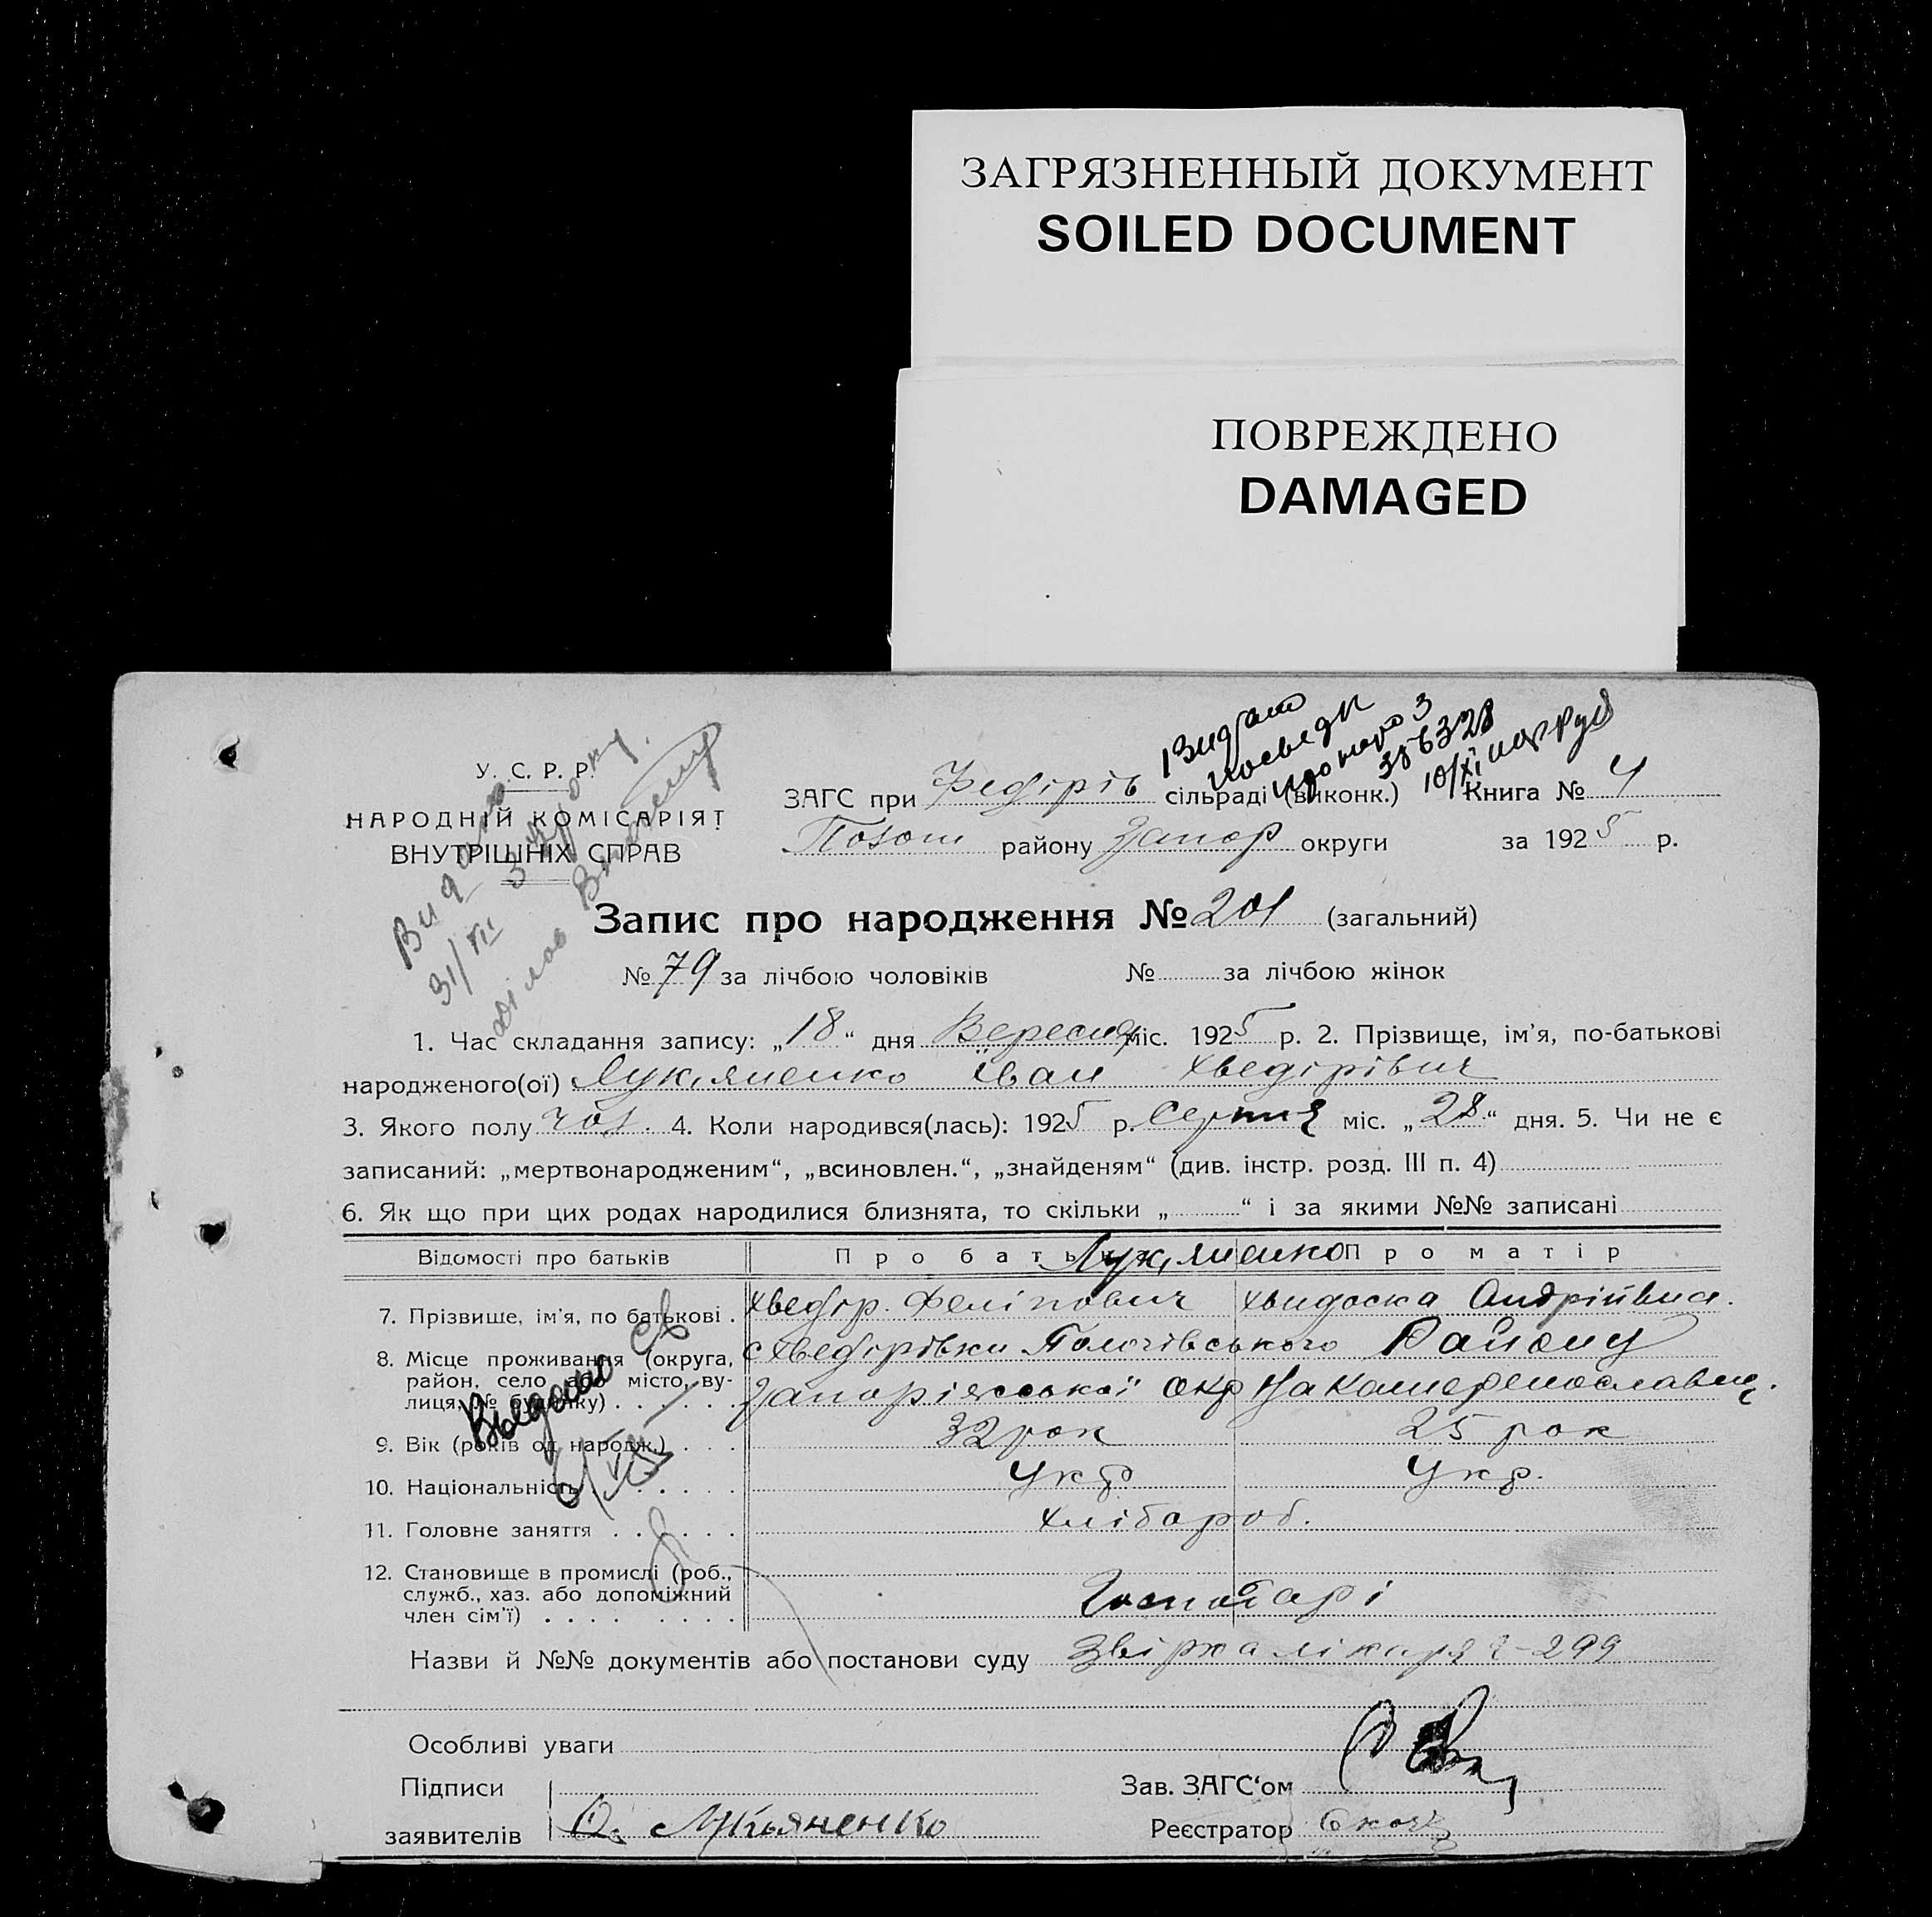 ЗАГРЯЗНЕННЫЙ ДОКУМЕНТ
SOILED DOCUMENT
ПОВРЕЖДЕНО
DAMAGED
У. С. Р. Р.
НАРОДНІЙ КОМІСАРІЯТ
ВНУТРІШНІХ СПРАВ
ЗАГС при Федорів сільраді (виконк.) Книга № 4
району Запор округи за 1925 р.
Запис про народження № 201 (загальний)
№ 79 за лічбою чоловіків № за лічбою жінок
1. Час складання запису: „18“ дня Вересня міс. 1925 р. 2. Прізвище, ім'я, по-батькові
народженого(ої) Лукяненко Іван Хведірівич
3. Якого полу чол. 4. Коли народився(лась): 1925 р. Серпня міс. „28“ дня. 5. Чи не є
записаний: „мертвонародженим“, „всиновлен.“, „знайденям“ (див. інстр. розд. III п. 4)
6. Як що при цих родах народилися близнята, то скільки „ “ і за якими №№ записані
Відомості про батьків Про батька Лукяненко Про матір
7. Прізвище, ім'я, по батькові . Хведір. Феліпович Хвидоска Андріївна.
8. Місце проживання (округа, с Хведорівки Пологівського Району
район, село або місто, ву-
лиця, № будинку) . . . . . . Запоріжської окр
9. Вік (років од народж.) . . . 32 рок 25 рок
10. Національність . . . . . . . Укр Укр.
11. Головне заняття . . . . . . Хлібороб.
12. Становище в промислі (роб.,
служб., хаз. або допоміжний
член сім'ї) . . . . . . . . . Господарі
Назви й №№ документів або постанови суду 299
Особливі уваги
Підписи Зав. ЗАГС‘ом
заявителів О. Лукьяненко Реєстратор